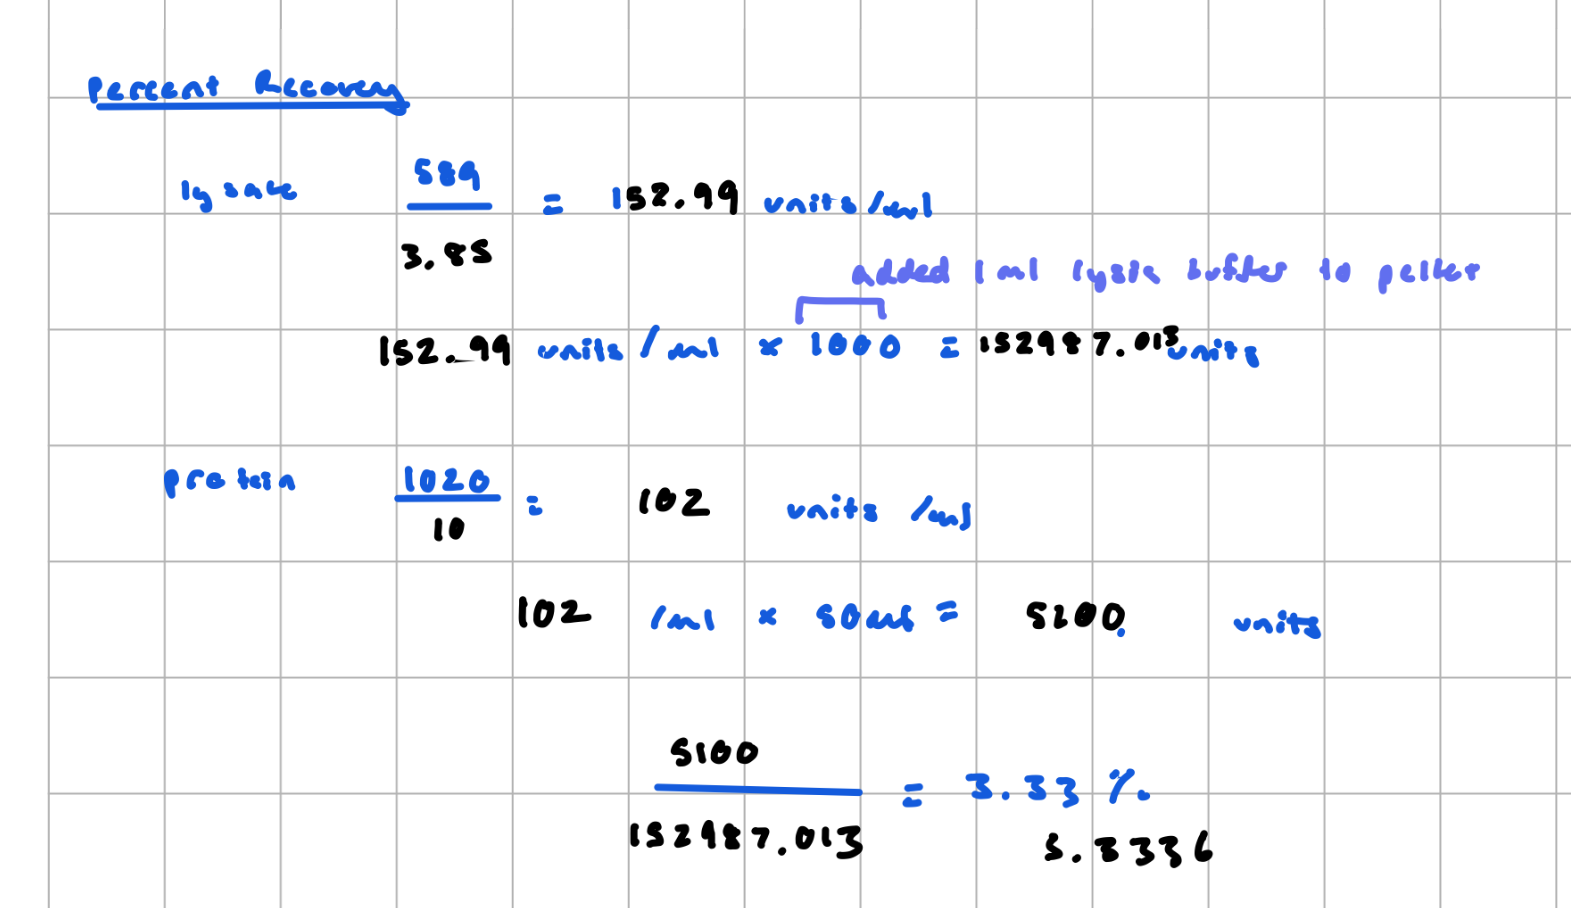 Percent Recovery
lysate 589 / 3.85 = 152.99 units/ml
added 1 ml lysis buffer to pellet
152.99 units/ml × 1000 = 152987.013 units
protein 1020 / 10 = 102 units/ml
102 /ml × 50 = 5100 units
5100 / 152987.013 = 3.33 %
3.3336